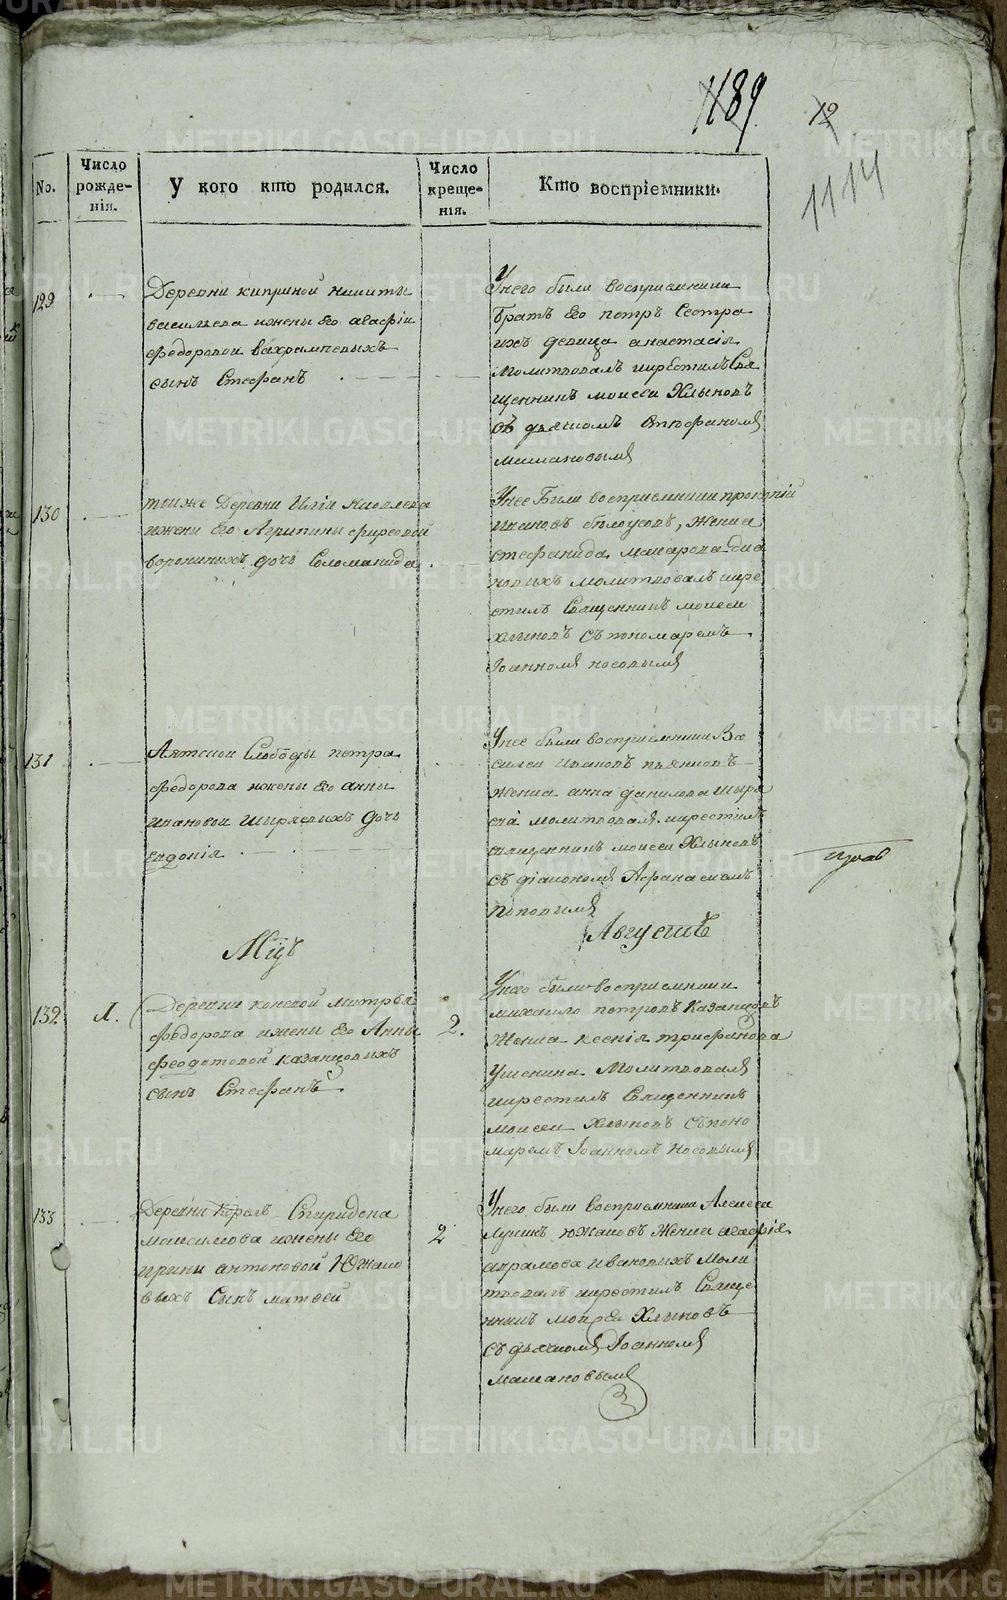 1189
12
1114
No.
Число рожденія.
У кого кто родился.
Число крещенія.
Кто воспріемники.
129
Деревни киприной никиты
васильева ижены Его агафіи
федоровои вахрампевыхъ
сынъ Стефанъ
Унего были восприемники
братъ Его петръ Сестра
ихъ девица анастасія
Молитвовалъ икрестилъ Свя
щенникъ моисеи Хлыновъ
съ дьячкомъ Стефаномъ
мамановымъ
130
тояже Деревни Ильи Яковлева
ижены Его Агрипины фирсовой
воронихъ дочь Соломанида
Унее Были восприемники прокопій
ивановъ белоусовъ, женка
стефанида макарова
молитвовалъ икре
стилъ Священникъ моисеи
хлыновъ съ пономаремъ
Іоанномъ носовымъ
131
Аятской Слободы петра
федорова ижены Его анны
ивановой ширяевыхъ дочь
евдокія
Унее были восприемники Ва
силеи ивановъ пьянковъ
женка анна данилова ширя
ева молитвовалъ икрестилъ
священникъ моисеи Хлыновъ
съ діакономъ Афанасиемъ
поповымъ
Мцъ
Августъ
132
1.
Деревни коневой митрея
федорова ижены Его Анны
феодотовой казанцовыхъ
сынъ Стефанъ
2.
Унего были восприемники
михаило петровъ Казанцовъ
женка ксенія трифанова
Ушенина Молитвовалъ
икрестилъ Священникъ
моисеи хлыновъ съ поно
маремъ Іоанномъ носовымъ
133
Деревни Корелъ Спиридона
максимова ижены Его
ирины антоновой Южако
выхъ Сынъ матвей
2
Унего были восприемники Алексеи
Лукинъ южаковъ Женка агафія
абрамова ивановыхъ моли
твовалъ икрестилъ Свяще
нникъ моисеи Хлыновъ
съ дьячкомъ Іоанномъ
мамановымъ
METRIKI.GASO-URAL.RU